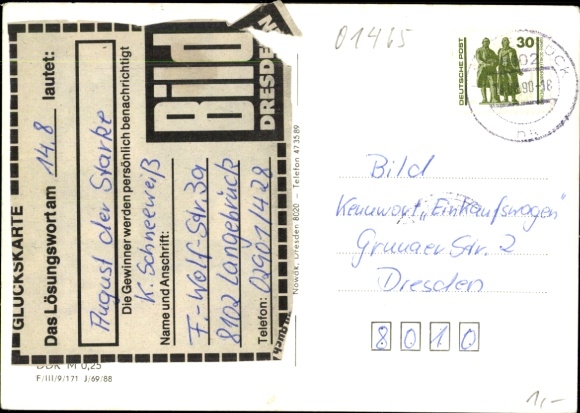 GLÜCKSKARTE
Das Lösungswortam 14.8 lautet:
August der Starke
Die Gewinner werden persönlich benachrichtigt
K. Schneeweiß
Name und Anschrift:
F.-Wolf-Str. 3a
8102 Langebrück
Telefon: 02901/428
Bild
DRESDEN
Nowak, Dresden 8020 - Telefon 473589
DDR M 0,25
F/III/9/171 J/69/88
01465
DEUTSCHE POST
30
90-18
Bild
Kennwort „Einkaufswagen"
Grunaer Str. 2
Dresden
8010
1,-